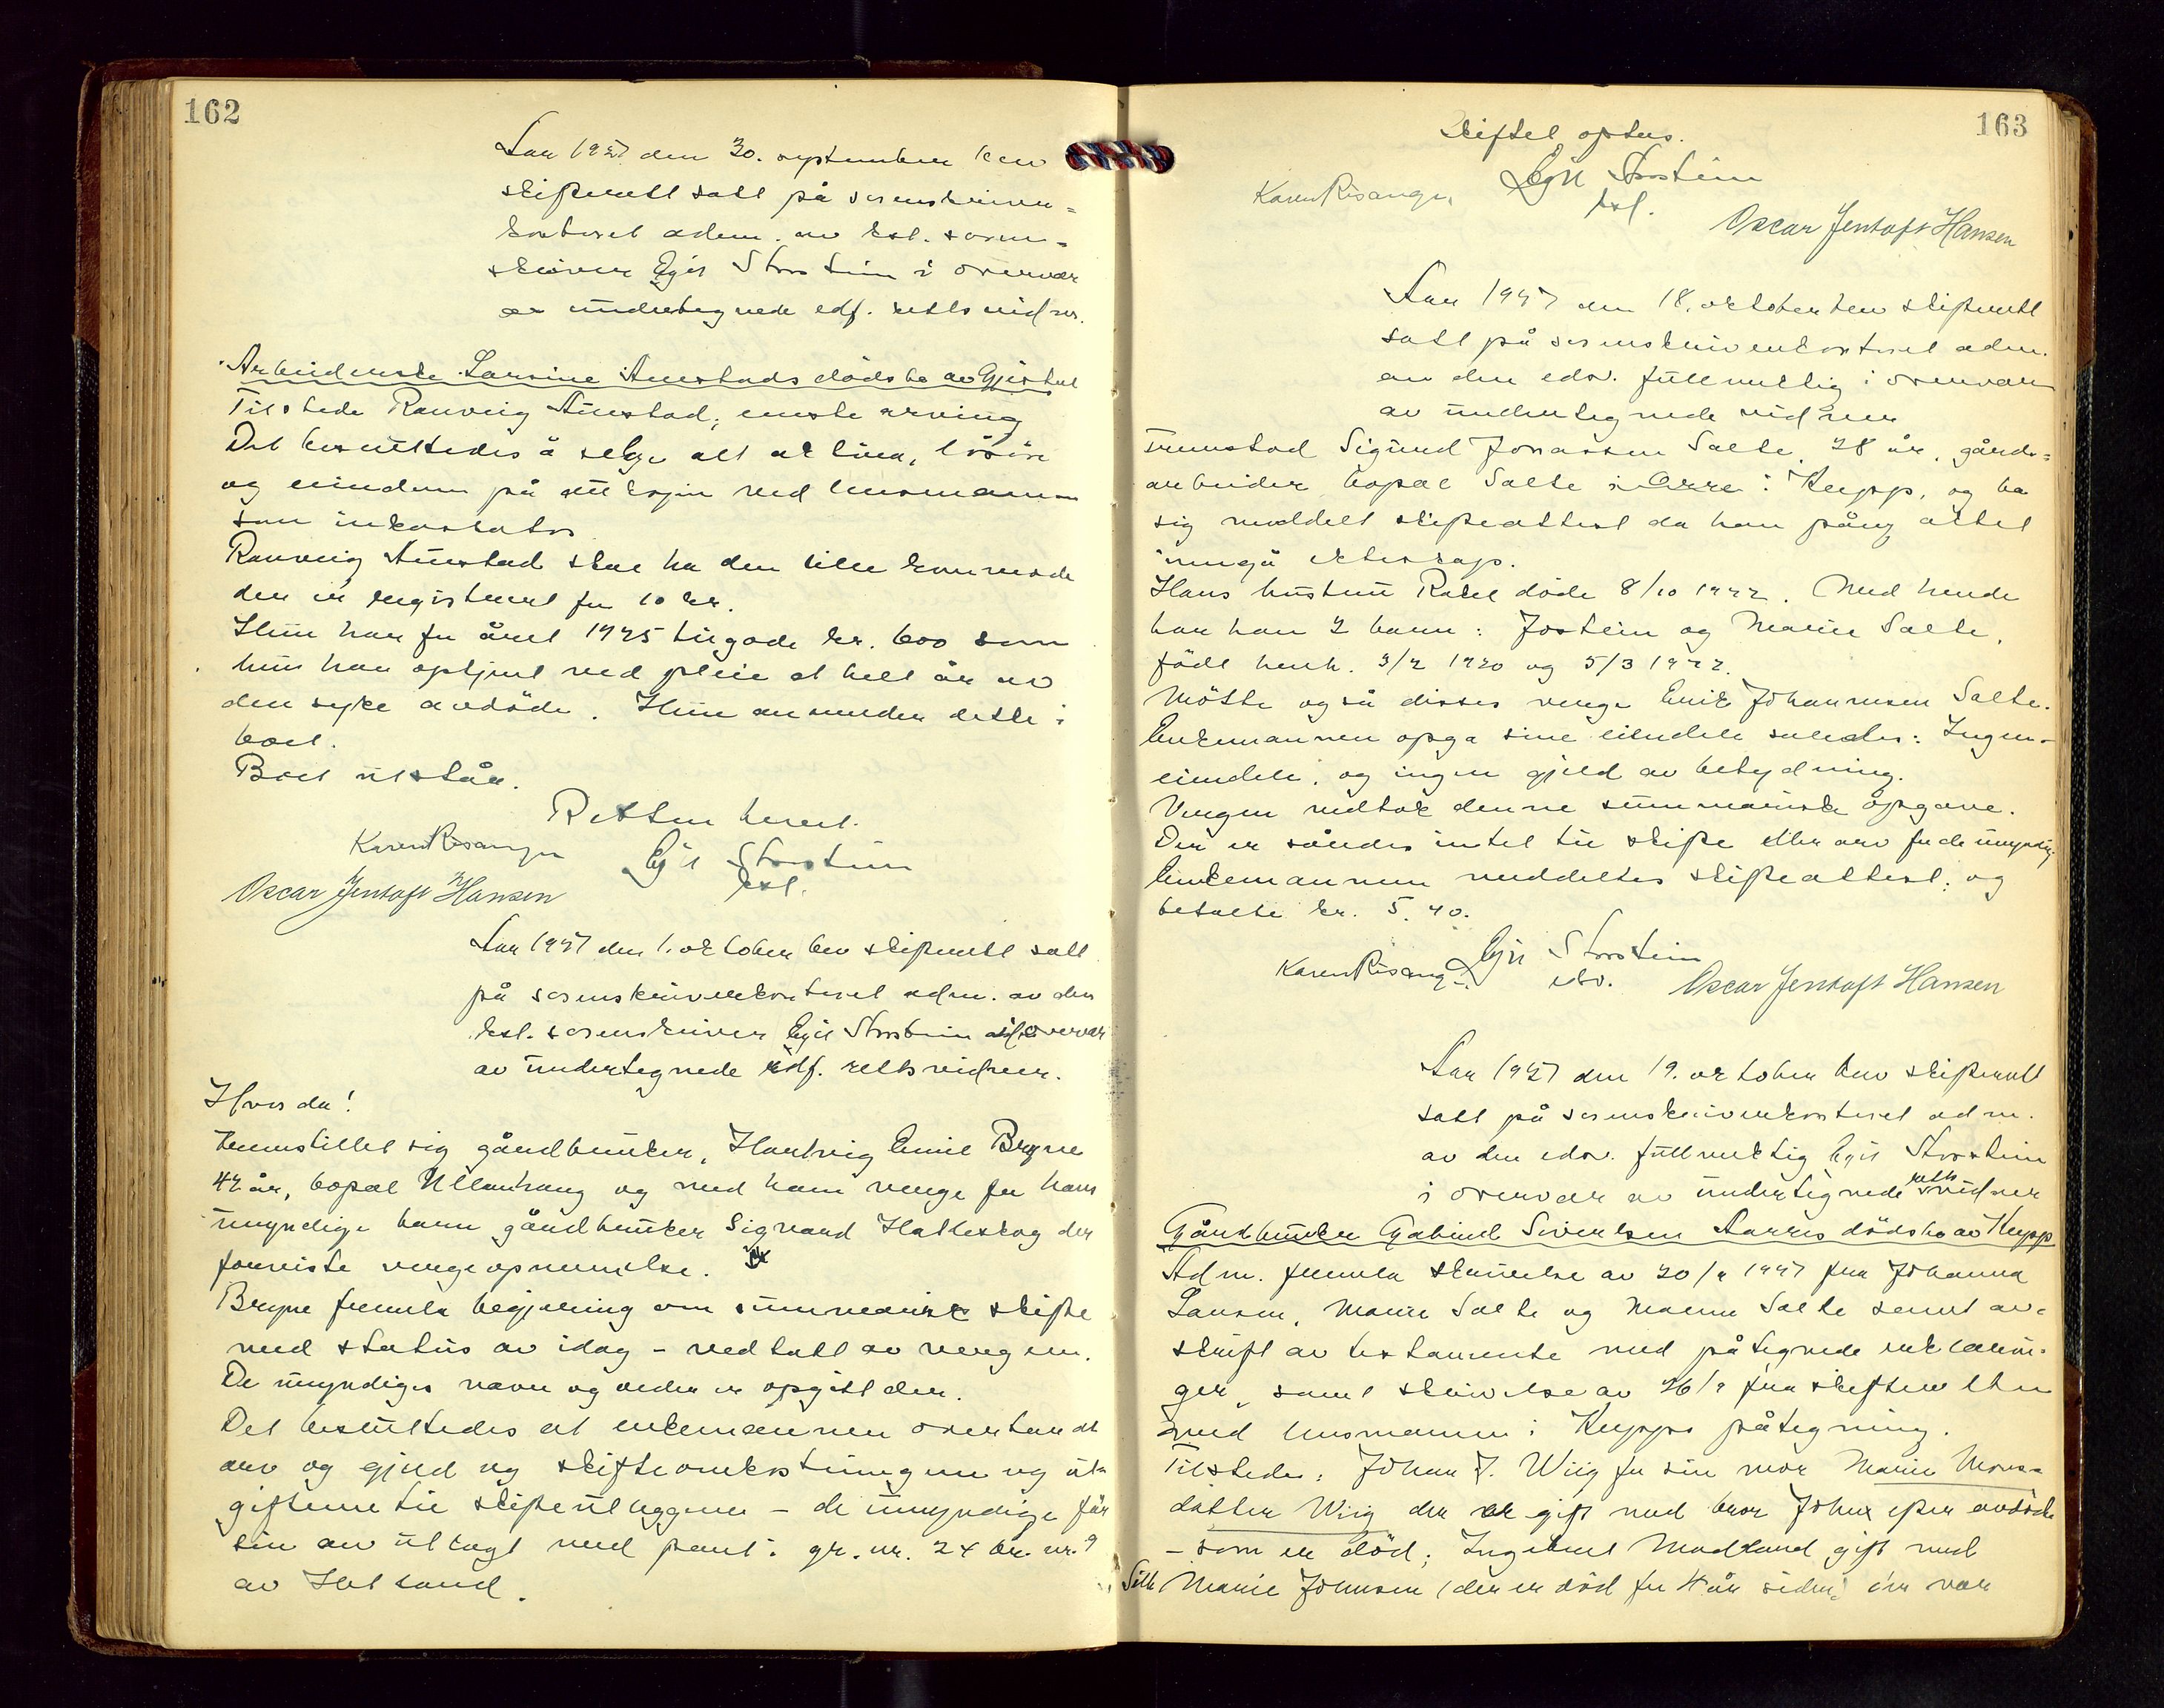 162
Aar 1927 den 30. september blev
skifterett satt på sorenskriver-
kontoret adm. av kst. soren-
skriver Egil Storstein i overvær
av undertegnede edf. rettsvidner.
Arbeiderske Larsine Aarestads dødsbo av Gjestal
Tilstede Ranveig Aarestad, eneste arving
Det besluttedes å selge alt av bua, løsøre
og eiendom på auksjon med lensmannen
som inkassator
Ranveig Aarestad skal ha den lille kommode
den er registreret for 10 kr.
Hun har for året 1925 tilgode kr. 600 som
hun har optjent ved pleie et helt år av
den syke avdøde. Hun anmelder dette i
boet.
Boet utstår.
Retten hevet.
Karen Risanger Egil Storstein
kst.
Oscar Jentoft Hansen
Aar 1927 den 1. oktober blev skifterett satt
på sorenskriverkontoret adm. av den
kst. sorenskriver Egil Storstein i overvær
av undertegnede edf. rettsvidner.
Hvor da!
Fremstillet sig gårdbruker, Hartvig Emil Bryne
42 år, bopæl Ullenhaug og med ham verge for hans
umyndige barn gårdbruker Sigvard Hatleskog der
foreviste vergeopnevnelse.
Bryne fremla begjæring om summarisk skifte
med status av idag – vedtatt av vergen.
De umyndiges navn og alder er opgitt der.
Det besluttedes at enkemannen overtar alt
arv og gjeld og skifteomkostningene og ut-
giftene til skifteutleggene – de umyndige får
sin arv utlagt med pant i gr. nr. 24 br. nr. 9
av Hetland.
163
Skiftet optas.
Karen Risanger Egil Storstein
kst.
Oscar Jentoft Hansen
Aar 1927 den 18. oktober blev skifterett
satt på sorenskriverkontoret adm.
av den edsv. fullmektig i overvær
av undertegnede vidner
Fremstod Sigurd Jonassen Salte, 28 år, gårds-
arbeider bopæl Salte i Orre i Klepp, og ba
sig meddelt skifteattest da han påny aktet
inngå ekteskap.
Hans hustru Rakel døde 8/10 1922. Med hende
har han 2 barn: Jostein og Marie Salte,
født henh. 3/2 1920 og 5/3 1922.
Møtte også disses verge Enok Johannesen Salte.
Enkemannen opga sine eiendele således: Ingen
eiendele, og ingen gjeld av betydning.
Vergen vedtok denne summariske opgave.
Der er således intet til skifte eller arv for de umyndig.
Enkemannen meddeltes skifteattest, og
betalte kr. 5.40.
Karen Risang. Egil Storstein
edsv. Oscar Jentoft Hansen
Aar 1927 den 19. oktober blev skifterett
satt på sorenskriverkontoret adm.
av den edsv. fullmektig Egil Storstein
i overvær av undertegnede retts vidner
Gårdbruker Gabriel Sivertsen Aarres dødsbo av Klepp
Adm. fremla skrivelse av 20/9 1927 fra Johanna
Larsen, Marie Salte og Marie Salte samt av-
skrift av testamente med påtegnede erklærin-
ger, samt skrivelse av 26/9 fra skifteretten
med lensmannen i Klepps påtegning.
Tilstede: Johan J. Wiig for sin mor Marie Mons-
datter Wiig der er gift med bror Johan efter avdøde
– som er død; Ingebret Madland gift med
Marie Johnsen (der er død for 4 år siden) der var